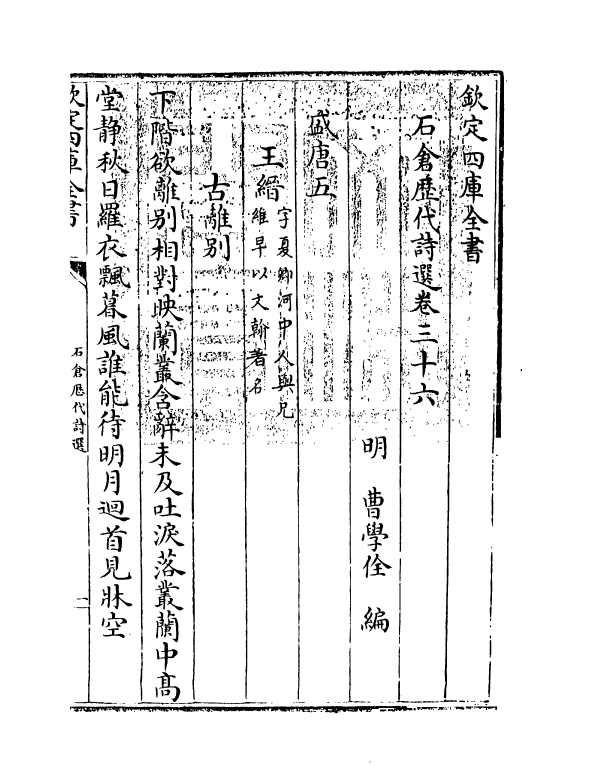 欽定四庫全書
石倉歷代詩選卷三十六
明 曹學佺 編
盛唐五
王縉字夏卿河中人與兄
維早以文翰著名
古離別
下階欲離別相對映蘭叢含辭未及吐淚落叢蘭中高
堂静秋日羅衣飄暮風誰能待明月迴首見牀空
欽定四庫全書
石倉歷代詩選